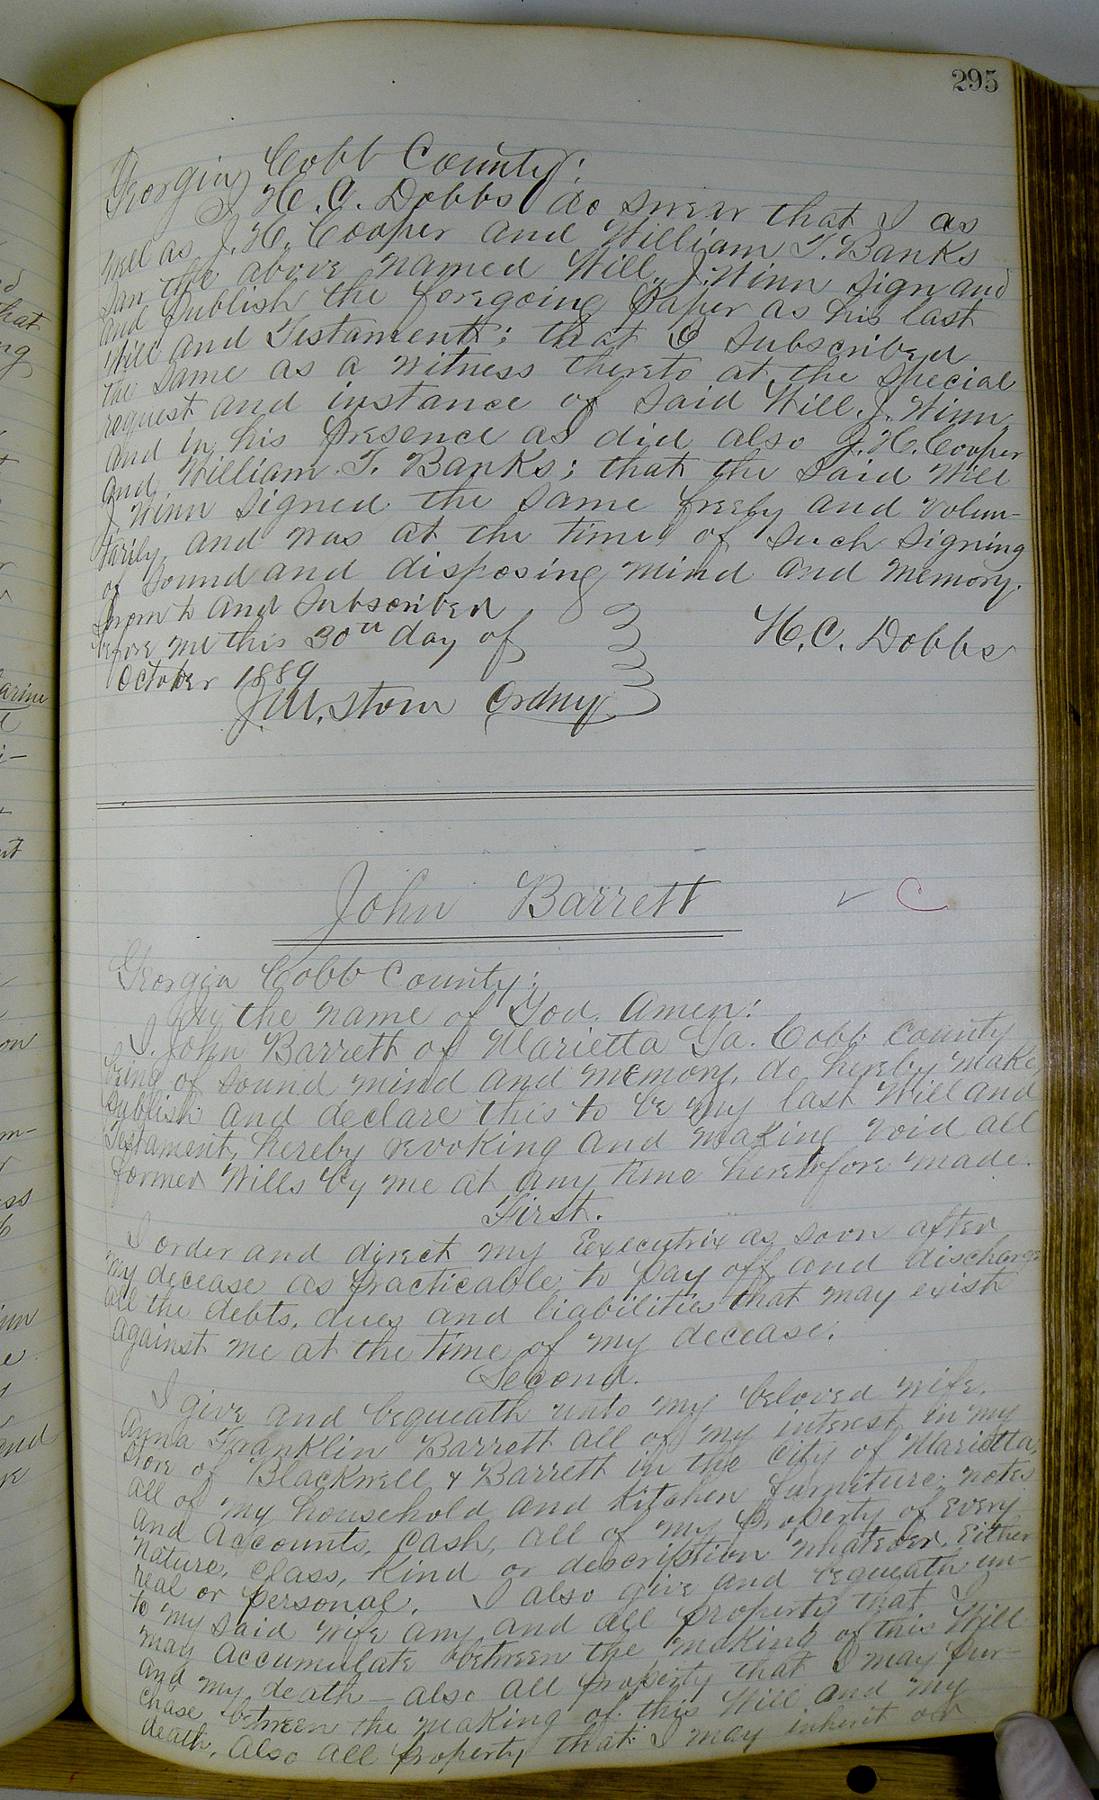 295
Georgia, Cobb County:
I H. C. Dobbs do swear that I as
well as J. H. Cooper and William T. Banks
saw the above named Will. J. Winn sign and
and publish the foregoing paper as his last
Will and Testament; that I subscribed
the same as a witness thereto at the special
request and instance of said Will. J. Winn
and in his presence as did also J. H. Cooper
and William T. Banks; that the said Will
J Winn signed the same freely and volun-
tarily, and was at the time of such signing
of sound and disposing mind and memory.
Sworn to and subscribed
before me this 30th day of
H. C. Dobbs
October 1889
J. M. Stone Ordny
John Barrett
✓ C
Georgia Cobb County:
In the name of God. Amen:
I. John Barrett of Marietta Ga. Cobb County
being of sound mind and memory, do hereby make,
publish and declare this to be my last Will and
Testament, hereby revoking and making void all
former Wills by me at any time heretofore made.
First.
I order and direct my Executrix as soon after
my decease as practicable to pay off and discharge
all the debts, dues and liabilities that may exist
against me at the time of my decease.
Second.
I give and bequeath unto my beloved wife,
Anna Franklin Barrett all of my interest in my
Store of Blackwell & Barrett in the city of Marietta,
all of my household and kitchen furniture; notes
and accounts, cash, all of my property of every
nature, class, kind or description whatever, either
real or personal. I also give and bequeath un-
to my said wife any and all property that I
may accumulate between the making of this Will
and my death - also all property that I may pur-
chase between the making of this Will and my
death, also all property that I may inherit or